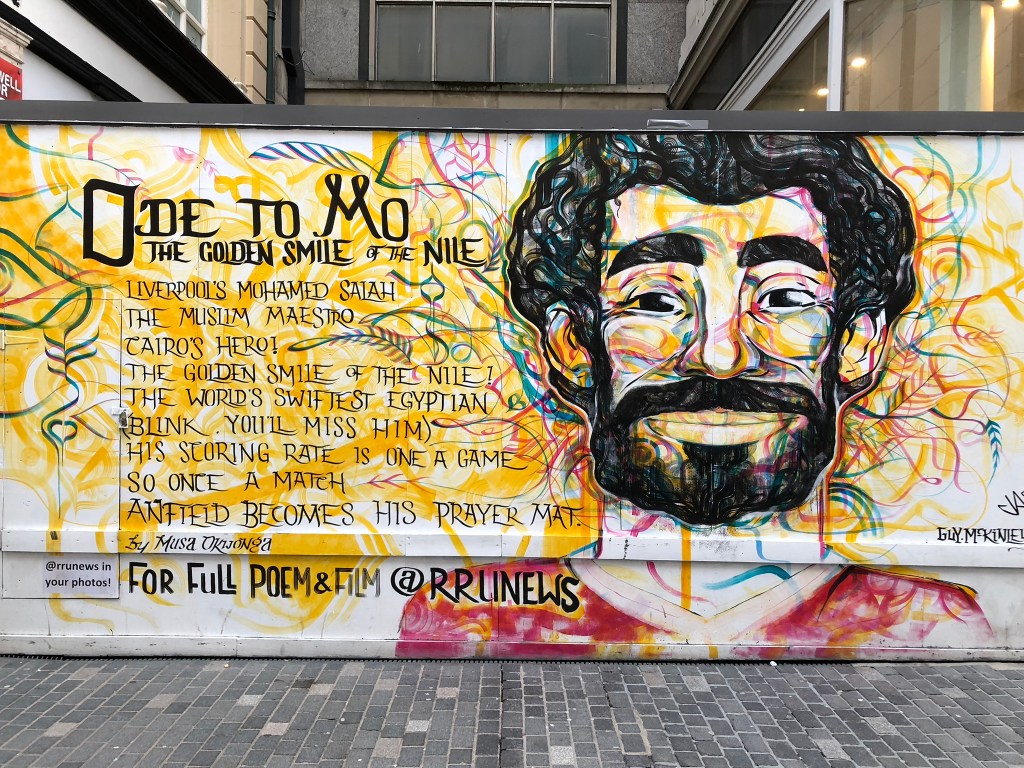 ODE TO MO
THE GOLDEN SMILE OF THE NILE
LIVERPOOL'S MOHAMED SALAH
THE MUSLIM MAESTRO
CAIRO'S HERO!
THE GOLDEN SMILE OF THE NILE!
THE WORLD'S SWIFTEST EGYPTIAN
(BLINK. YOU'LL MISS HIM)
HIS SCORING RATE IS ONE A GAME
SO ONCE A MATCH
ANFIELD BECOMES HIS PRAYER MAT.
by MUSA OKWONGA
FOR FULL POEM & FILM @RRUNEWS
@rrunews in
your photos!